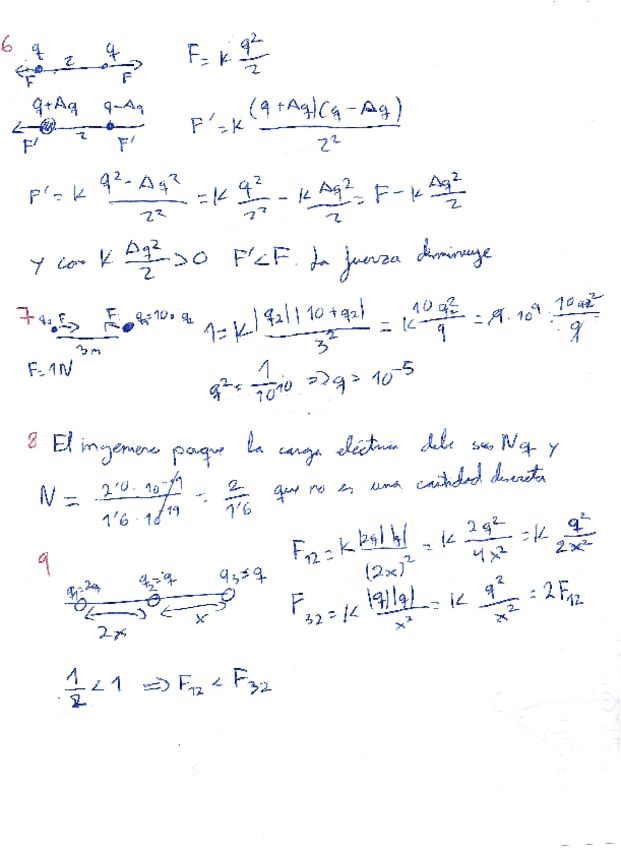 6 q 2 q F = K q²/2
F F
q+Δq q-Δq F' = K (q+Δq)(q-Δq)/2²
F' 2 F'
F' = K q²-Δq²/2² = K q²/2² - K Δq²/2 = F - K Δq²/2
y como K Δq²/2 > 0 F' < F. La fuerza disminuye
7 q₂ F F q₁=10·q₂ 1 = K |q₂||10+q₂|/3² = K 10q₂²/9 = 9·10⁹·
3m
F=1N
q² = 1/10¹⁰ => q = 10⁻⁵
8 El ingeniero porque la carga eléctrica debe ser Nq y
N = 2'0·10⁻¹⁹/1'6·10⁻¹⁹ = 2/1'6 que no es una cantidad discreta
9 F₁₂ = K |2q||q|/(2x)² = K 2q²/4x² = K q²/2x²
q₁=2q q₂=q q₃=q
2x x
F₃₂ = K |q||q|/x² = K q²/x² = 2F₁₂
1/2 < 1 => F₁₂ < F₃₂